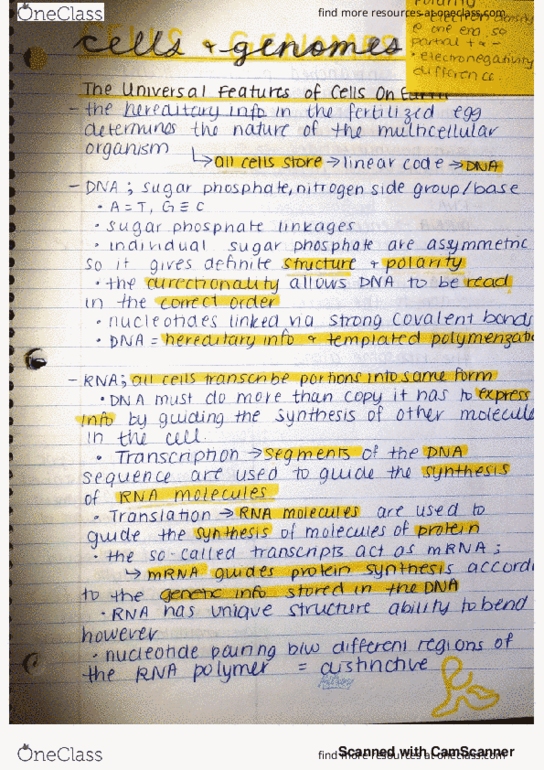 OneClass
find more resources at oneclass.com
cells + genomes
polarity
electron density
@ one end, so
partial + a -
• electronegativity
difference.
The Universal Features of Cells On Earth
- the hereditary info in the fertilized egg
determines the nature of the multicellular
organism
↳ all cells store → linear code → DNA
- DNA ; sugar phosphate, nitrogen side group/base
• A=T, G≡C
• sugar phosphate linkages
• individual sugar phosphate are asymmetric
so it gives definite structure + polarity
• the directionality allows DNA to be read
in the correct order
• nucleotides linked via strong covalent bonds
• DNA = hereditary info + templated polymerizatio
- RNA; all cells transcribe portions into same form
• DNA must do more than copy it has to express
info by guiding the synthesis of other molecule
in the cell.
• Transcription → segments of the DNA
sequence are used to guide the synthesis
of RNA molecules
• Translation → RNA molecules are used to
guide the synthesis of molecules of protein
• the so-called transcripts act as mRNA ;
↳ mRNA guides protein synthesis accordi
to the genetic info stored in the DNA
• RNA has unique structure ability to bend
however
• nucleotide pairing b/w different regions of
the RNA polymer = distinctive
OneClass
find more resources at oneclass.com
Scanned with CamScanner